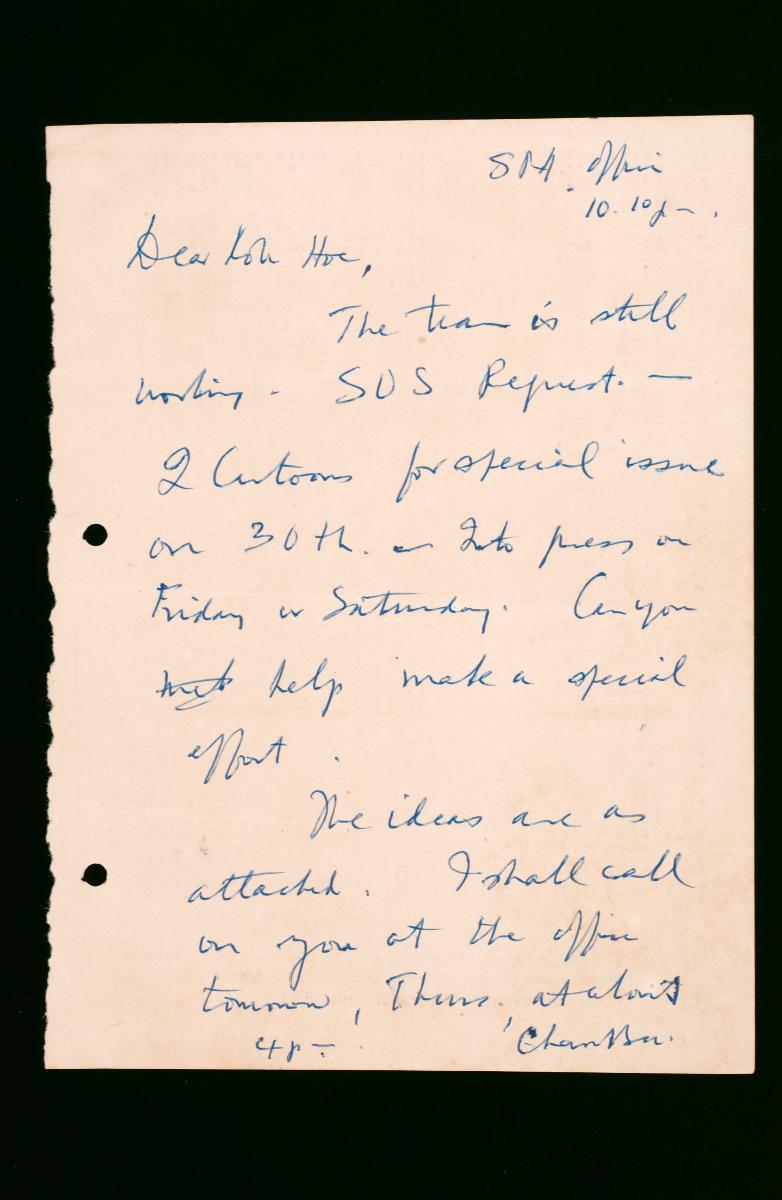 SPA. Office
10.10pm.
Dear Koh Hoe,
The team is still
working. SOS Request. —
2 Cartoons for special issue
on 30th. Into press on
Friday or Saturday. Can you
help make a special
effort.
The ideas are as
attached. I shall call
on you at the office
tomorrow, Thurs, at about
4 pm.